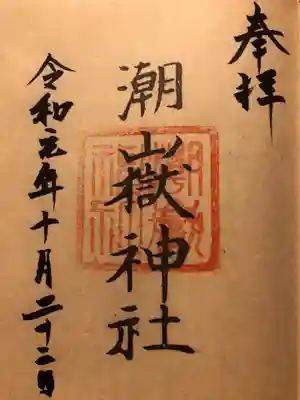 奉拝
潮嶽神社
令和元年十月二十二日